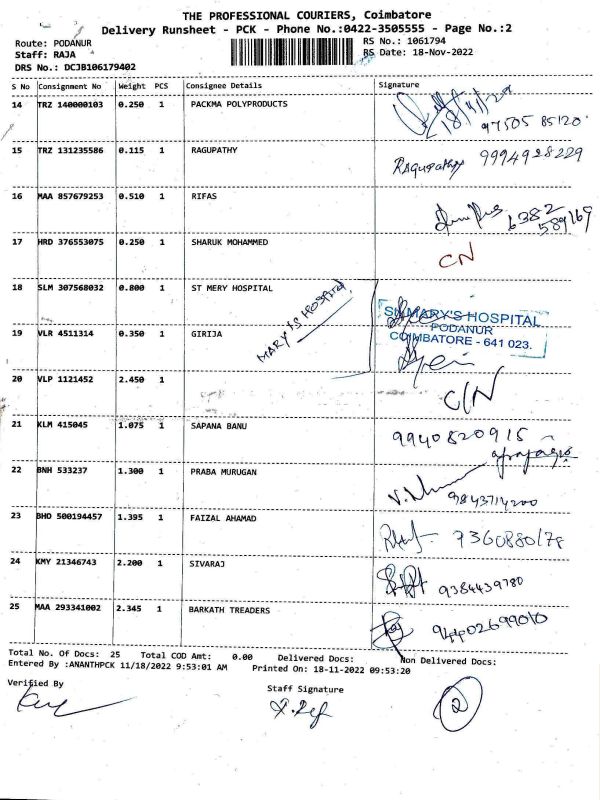 THE PROFESSIONAL COURIERS, Coimbatore
Delivery Runsheet - PCK - Phone No.:0422-3505555 - Page No.:2
Route: PODANUR
RS No.: 1061794
Staff: RAJA
RS Date: 18-Nov-2022
DRS No.: DCJB106179402
S No Consignment No Weight PCS Consignee Details Signature
14 TRZ 140000103 0.250 1 PACKMA POLYPRODUCTS
97505 85120
15 TRZ 131235586 0.115 1 RAGUPATHY Ragupathy 9994928229
16 MAA 857679253 0.510 1 RIFAS 6382
589169
17 HRD 376553075 0.250 1 SHARUK MOHAMMED CN
18 SLM 307568032 0.800 1 ST MERY HOSPITAL MARY'S HOSPITAL
ST. MARY'S HOSPITAL
PODANUR
COIMBATORE - 641 023.
19 VLR 4511314 0.350 1 GIRIJA
20 VLP 1121452 2.450 1 C/N
21 KLM 415045 1.075 1 SAPANA BANU 9940820915
22 BNH 533237 1.300 1 PRABA MURUGAN 9843714200
23 BHO 500194457 1.395 1 FAIZAL AHAMAD 7360880178
24 KMY 21346743 2.200 1 SIVARAJ 9384439780
25 MAA 293341002 2.345 1 BARKATH TREADERS 94402699010
Total No. Of Docs: 25 Total COD Amt: 0.00 Delivered Docs: Non Delivered Docs:
Entered By :ANANTHPCK 11/18/2022 9:53:01 AM Printed On: 18-11-2022 09:53:20
Verified By
Staff Signature
2